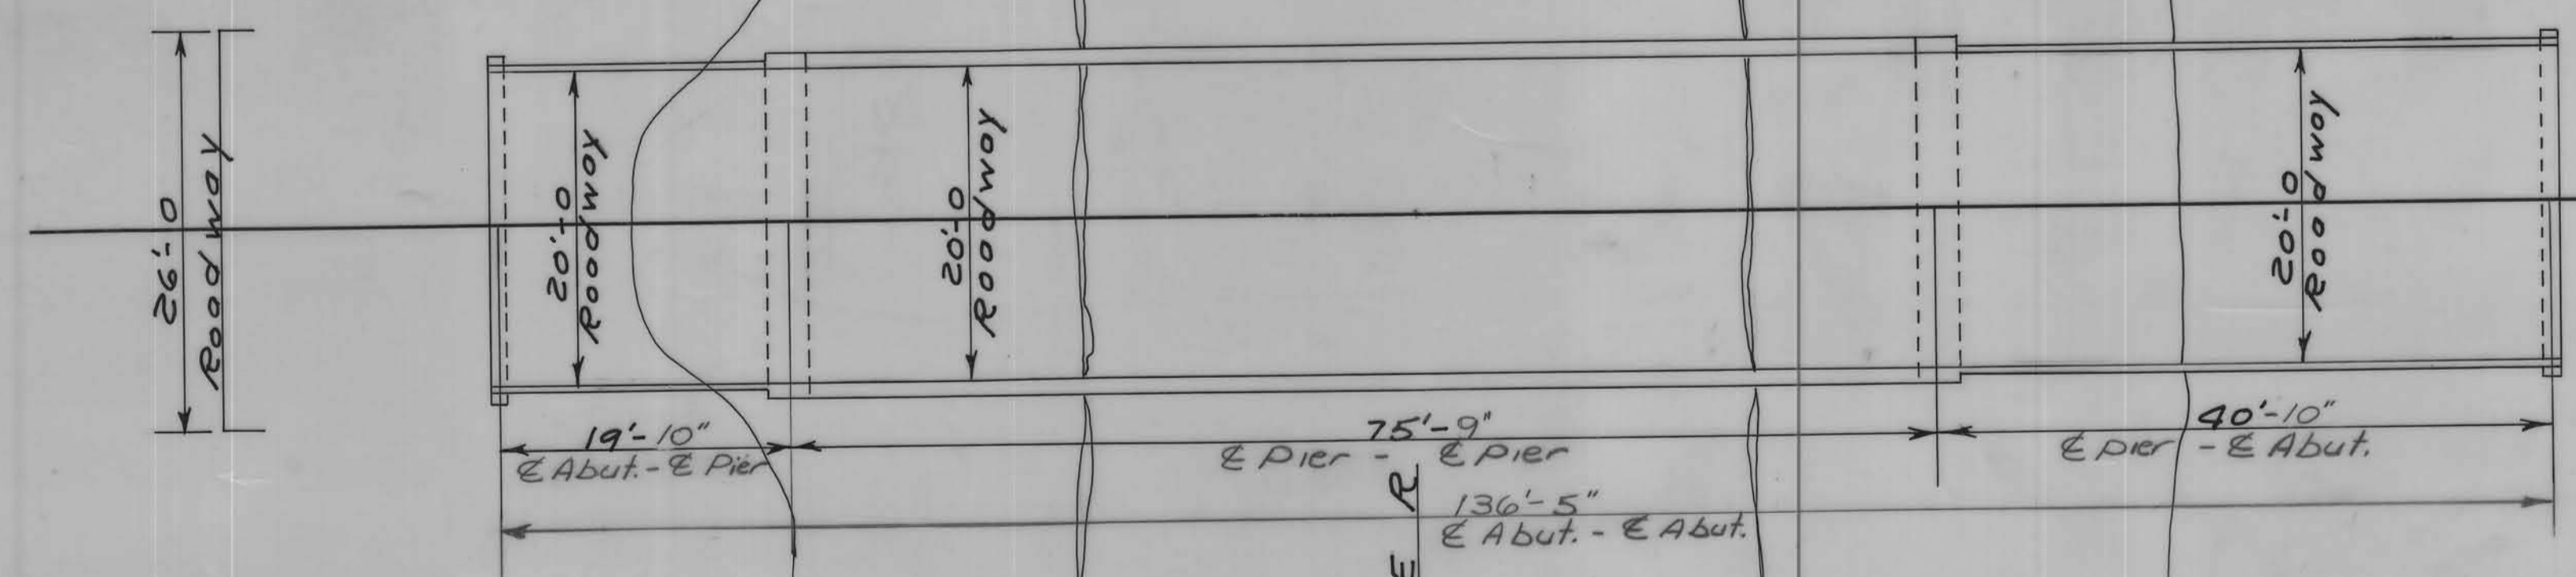 26'-0
Roadway
20'-0
Roadway
20'-0
Roadway
20'-0
Roadway
19'-10"
℄ Abut. - ℄ Pier
75'-9"
℄ Pier - ℄ Pier
40'-10"
℄ Pier - ℄ Abut.
136'-5"
℄ Abut. - ℄ Abut.
E R